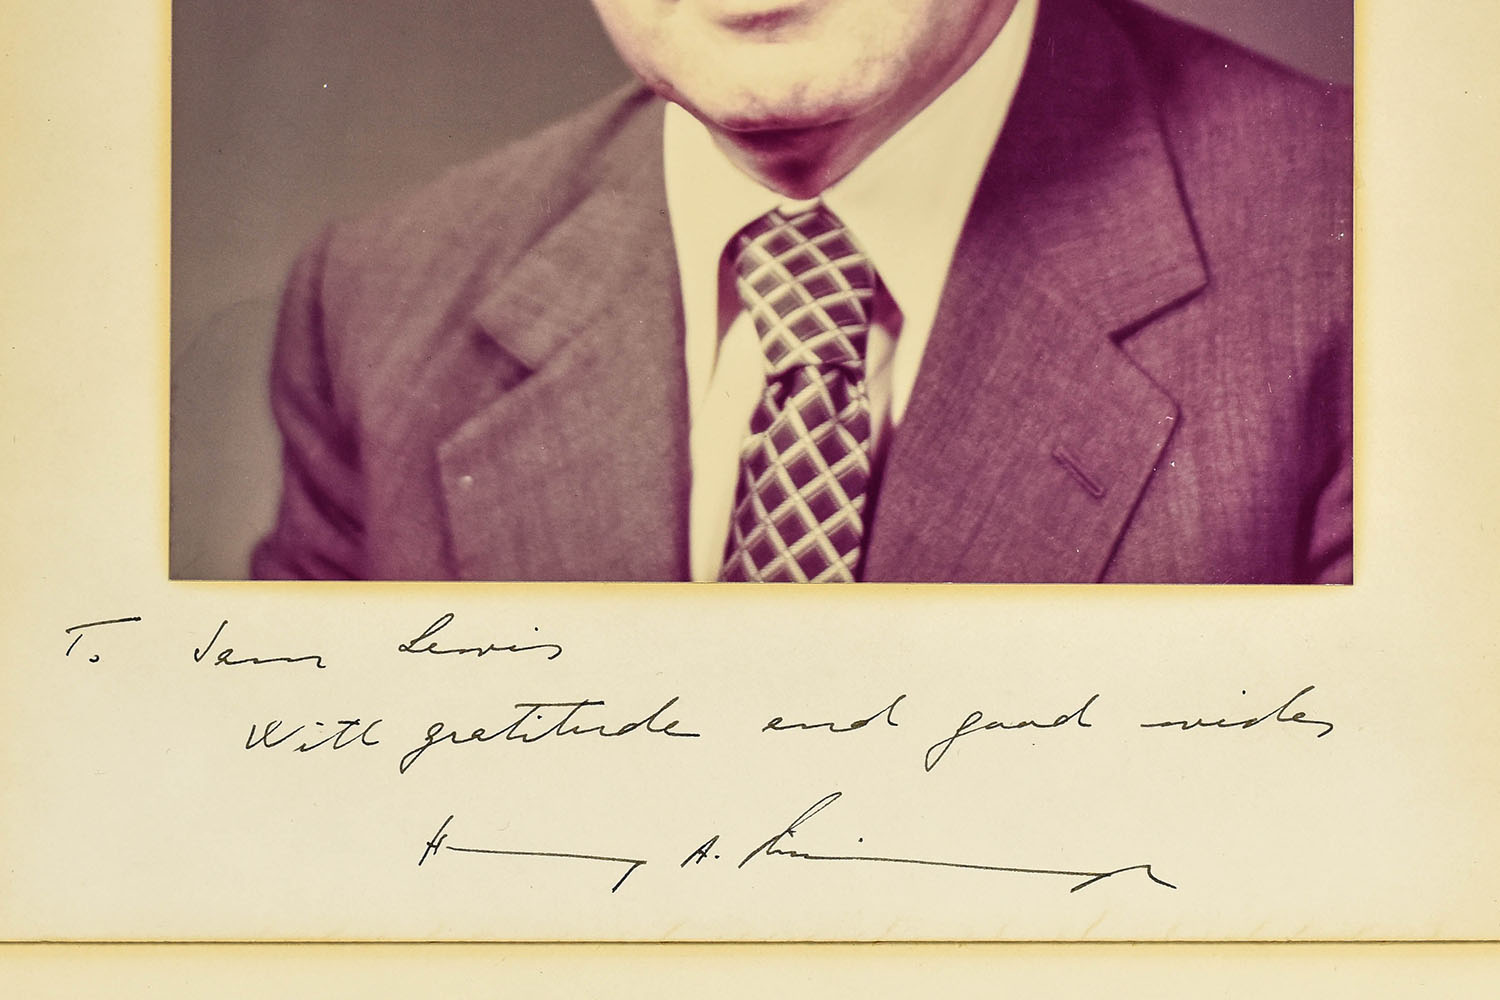 To Sam Lewis
With gratitude and good wishes
Henry A. Kissinger